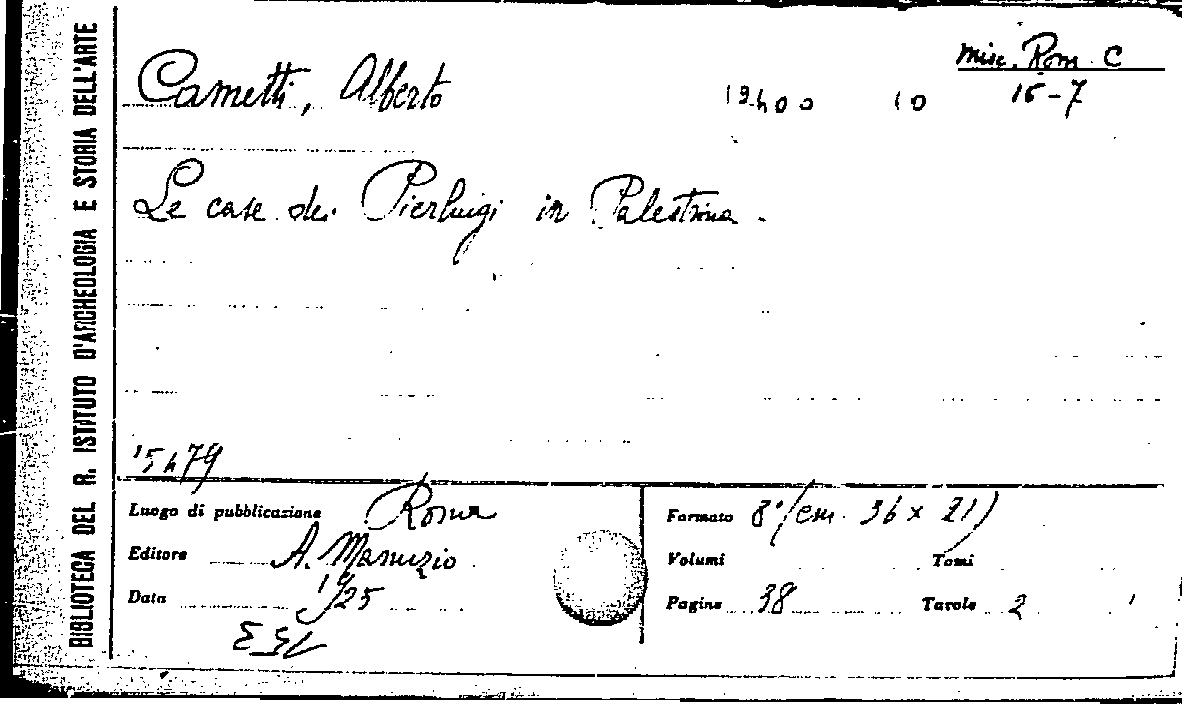 BIBLIOTECA DEL R. ISTITUTO D'ARCHEOLOGIA E STORIA DELL'ARTE
Misc. Rom. C
Cametti, Alberto
10
15-7
Le case dei Pierluigi in Palestrina.
Luogo di pubblicazione Roma
Editore A. Manuzio
Data 1925
Formato 8° (cm. 36 x 21)
Volumi Tomi
Pagine 38 Tavole 2